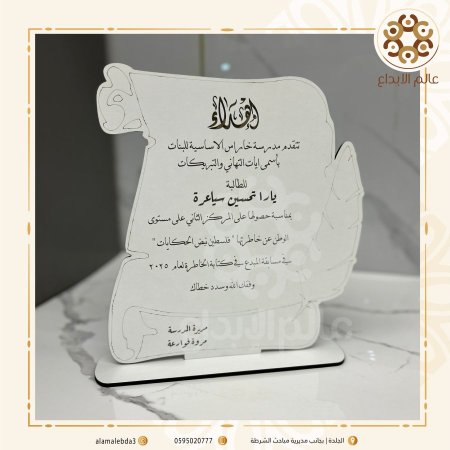 عالم الإبداع
إهداء
تتقدم مدرسة خاراس الاساسية للبنات
بأسمى ايات التهاني والتبريكات
للطالبة
يارا تحسين سياعرة
بمناسبة حصولها على المركز الثاني على مستوى
الوطن عن خاطرتها " فلسطين نبض الحكايات "
في مسابقة المبدع في كتابة الخاطرة لعام ٢٠٢٥
وفقك الله وسدد خطاك
مديرة المدرسة
مروة قوارعة
عالم الإبداع
الجلدة | بجانب مديرية مباحث الشرطة
0595020777
alamalebda3